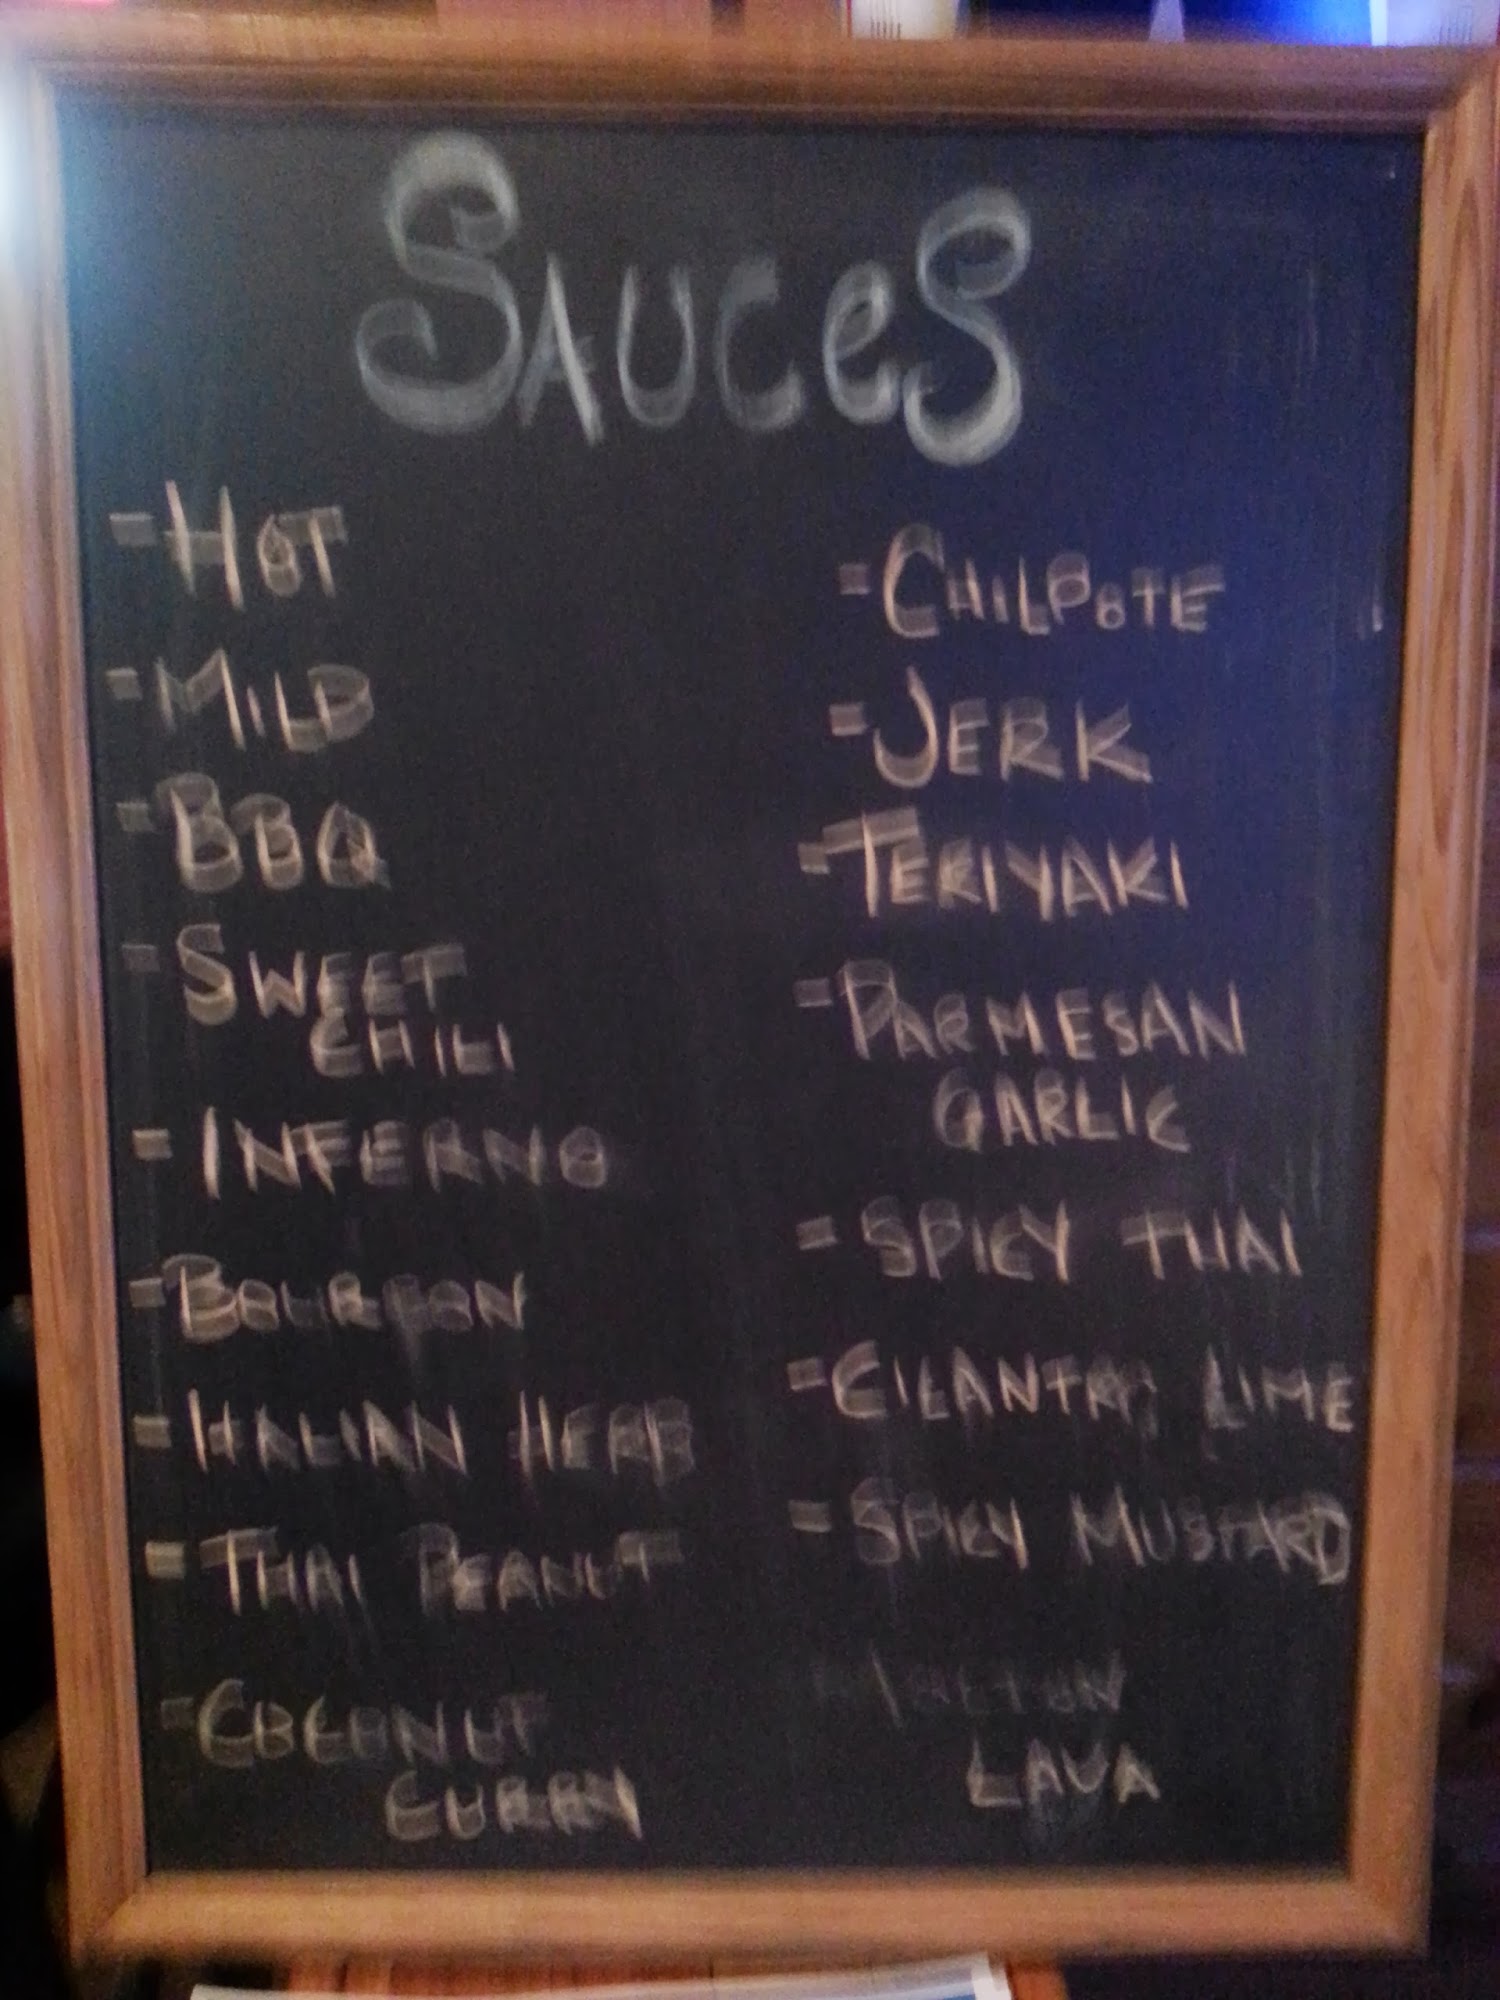 SAUCeS
- HOT
- MILD
- BBQ
- SWEET
CHILI
- INFERNO
- BOURBON
- ITALIAN HERB
- THAI PEANUT
- COCONUT
CURRY
- CHILPOTE
- JERK
- TERIYAKI
- PARMESAN
GARLIC
- SPICY THAI
- CILANTRO LIME
- SPICY MUSTARD
LAVA